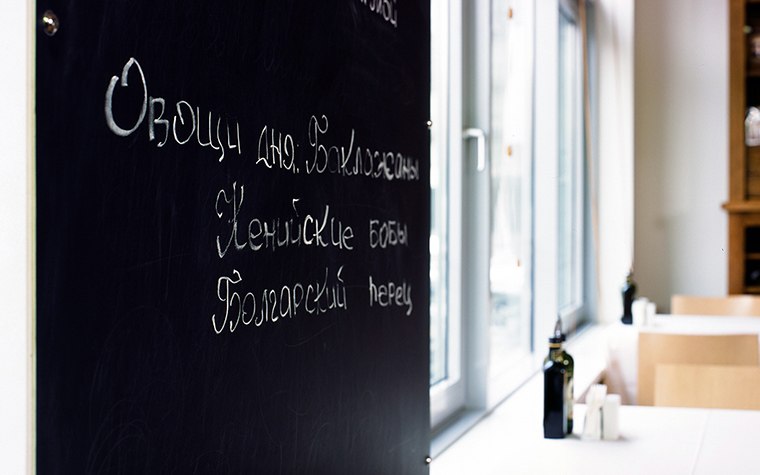 Овощи дня: Баклажаны
Кенийские бобы
Болгарский перец